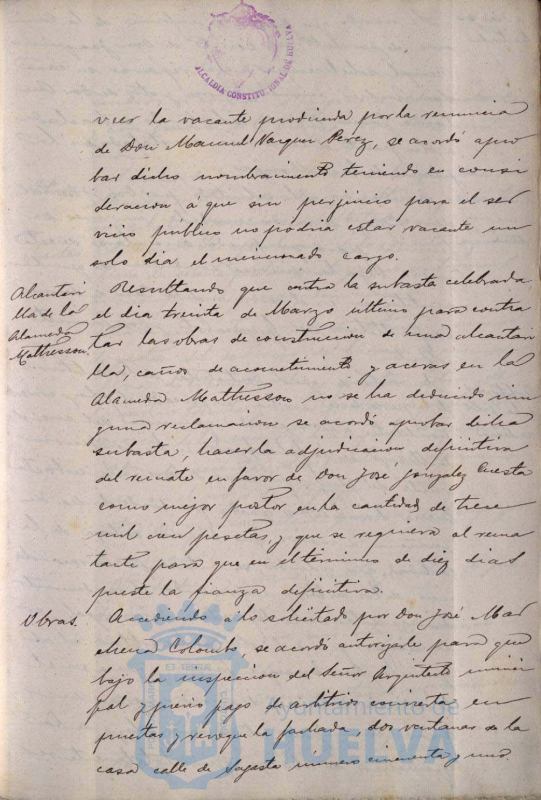 ALCALDIA CONSTITUCIONAL DE HUELVA
veer la vacante producida por la renuncia
de Don Manuel Vazquez Perez, se acordó apro
bar dicho nombramiento teniendo en consi
deracion á que sin perjuicio para el ser
vicio público no podria estar vacante un
solo dia el mencionado cargo.
Alcantari
lla de la
Alameda
Mathesson.
Resultando que contra la subasta celebrada
el dia treinta de Marzo último para contra
tar las obras de construccion de una alcantari
lla, caños de acometimiento y aceras en la
Alameda Mathesson no se ha deducido nin
guna reclamacion se acordó aprobar dicha
subasta, hacer la adjudicacion definitiva
del remate en favor de Don José Gonzalez Cuesta
como mejor postor en la cantidad de trece
mil cien pesetas, y que se requiera al rema
tante para que en el término de diez dias
preste la fianza definitiva.
Obras.
Accediendo á lo solicitado por Don José Mar
chena Colombo, se acordó autorizarle para que
bajo la inspeccion del Señor Arquitecto munici
pal y previo pago de arbitrios convierta en
puertas y revoque la fachada, dos ventanas de la
casa calle de Sagasta número cincuenta y uno.
Ayuntamiento de
HUELVA